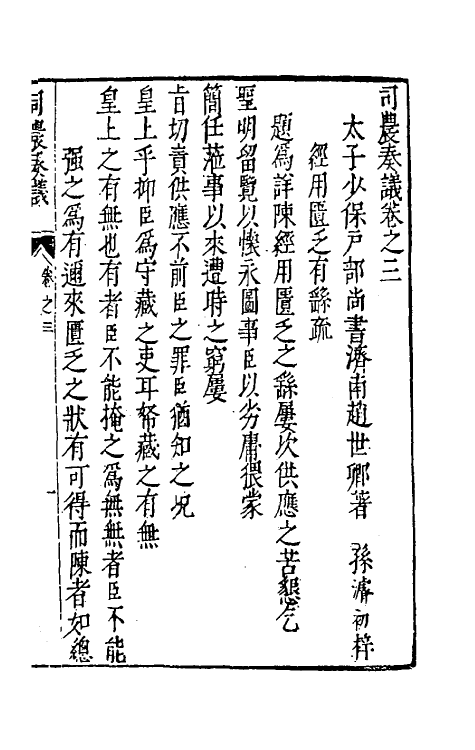 司農奏議卷之三
太子少保戸部尚書濟南趙世卿著　孫濬初梓
經用匱乏有繇疏
題爲詳陳經用匱乏之繇屢次供應之苦懇乞
聖明留覽以懷永圖事臣以劣庸猥蒙
簡任蒞事以來遭時之窮屢
旨切責供應不前臣之罪臣猶知之况
皇上乎抑臣爲守藏之吏耳帑藏之有無
皇上之有無也有者臣不能掩之爲無無者臣不能
强之爲有邇來匱乏之狀有可得而陳者如總
司農奏議
卷之三
一